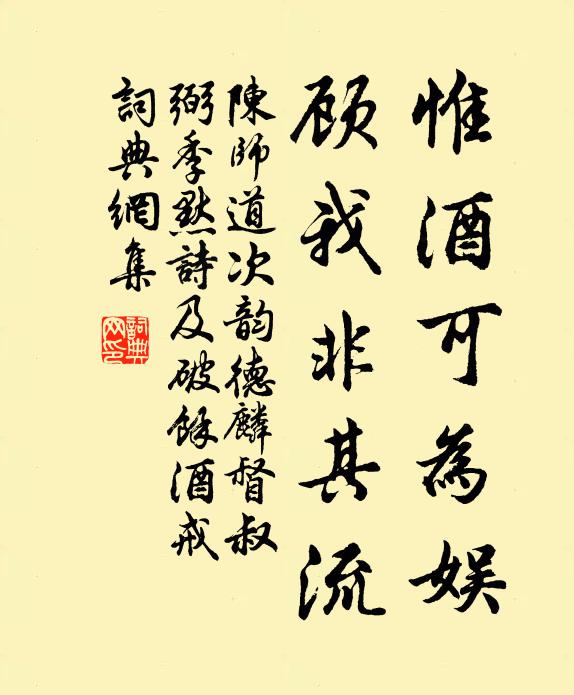 惟酒可為娱
顾我非其流
陳師道次韵德麟督叔
弼季默詩及破餘酒戒
詞典網集
詞典网印